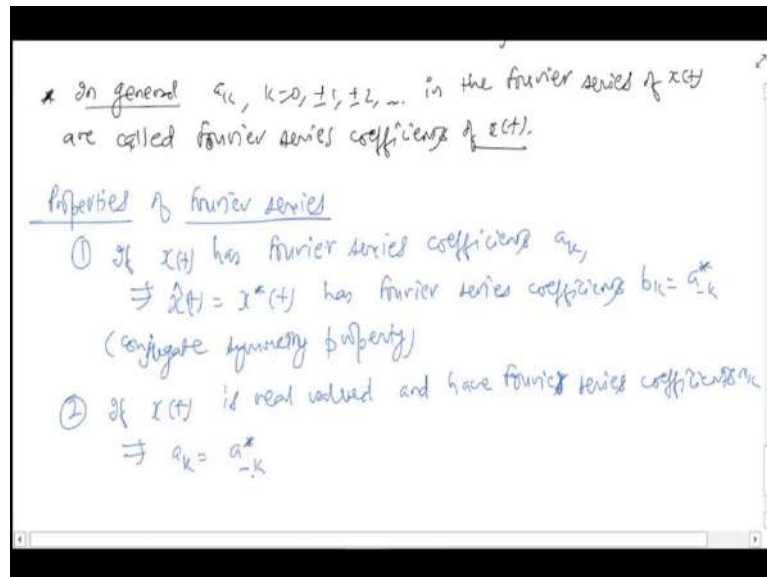 * In general aₖ, k=0, ±1, ±2, ... in the fourier series of x(t)
are called fourier series coefficients of x(t).
Properties of fourier series
① If x(t) has fourier series coefficients aₖ,
⇒ x̂(t) = x*(t) has fourier series coefficients bₖ = a*₋ₖ
(conjugate symmetry property)
② If x(t) is real valued and have fourier series coefficients aₖ
⇒ aₖ = a*₋ₖ